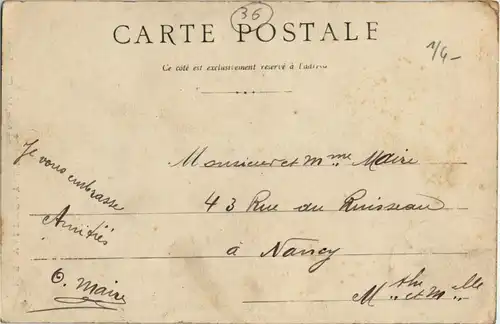 36
CARTE POSTALE
1/4-
Ce côté est exclusivement réservé à l'adresse
Je vous embrasse
Amitiés
O. Maire
Monsieur et Mme Maire
43 Rue du Ruisseau
à Nancy
Mthe et Melle